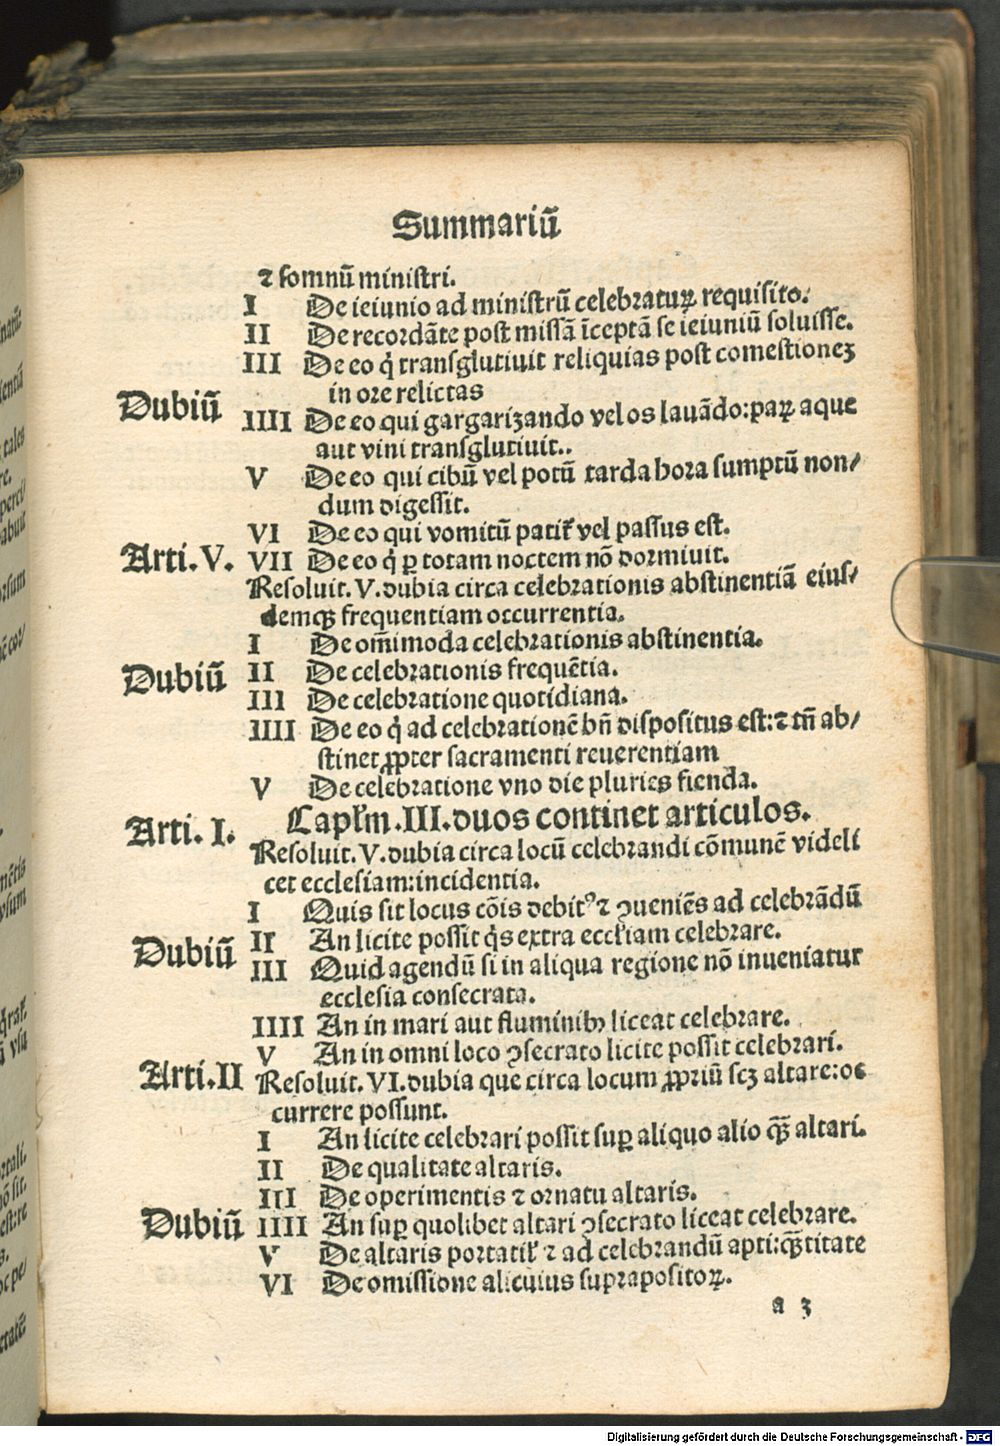 Summariũ
⁊ somnũ ministri.
I De ieiunio ad ministrũ celebratuꝝ requisito.
II De recordãte post missã ĩceptã se ieiuniũ soluisse.
III De eo q̇ transglutiuit reliquias post comestioneȝ
in ore relictas
Dubiũ
IIII De eo qui gargariȝando vel os lauãdo: paꝝ aque
aut vini transglutiuit..
V De eo qui cibũ vel potũ tarda hora sumptũ non/
dum digessit.
VI De eo qui vomitũ patit᷑ vel passus est.
Arti. V. VII De eo q̇ ꝑ totam noctem nõ dormiuit.
Resoluit. V. dubia circa celebrationis abstinentiã eius/
demqꝫ frequentiam occurrentia.
I De om̃imoda celebrationis abstinentia.
Dubiũ II De celebrationis frequẽtia.
III De celebratione quotidiana.
IIII De eo q̇ ad celebrationẽ bñ dispositus est: ⁊ tñ ab/
stinet ꝓpter sacramenti reuerentiam
V De celebratione vno die pluries fienda.
Capl̃m .III. duos continet articulos.
Arti. I.
Resoluit. V. dubia circa locũ celebrandi cõmunẽ videli
cet ecclesiam: incidentia.
I Quis sit locus cõis debitꝰ ⁊ ꝯueniẽs ad celebrãdũ
Dubiũ II An licite possit q̇s extra eccl̃iam celebrare.
III Quid agendũ si in aliqua regione nõ inueniatur
ecclesia consecrata.
IIII An in mari aut fluminibꝫ liceat celebrare.
V An in omni loco ꝯsecrato licite possit celebrari.
Arti. II Resoluit. VI. dubia que circa locum ꝓpriũ scȝ altare: oc
currere possunt.
I An licite celebrari possit suꝑ aliquo alio qꝫ̃ altari.
II De qualitate altaris.
III De operimentis ⁊ ornatu altaris.
Dubiũ IIII An suꝑ quolibet altari ꝯsecrato liceat celebrare.
V De altaris portatil᷑ ⁊ ad celebrandũ apti: qꝫ̃titate
VI De omissione alicuius suprapositoꝝ.
a 3
Digitalisierung gefördert durch die Deutsche Forschungsgemeinschaft - DFG